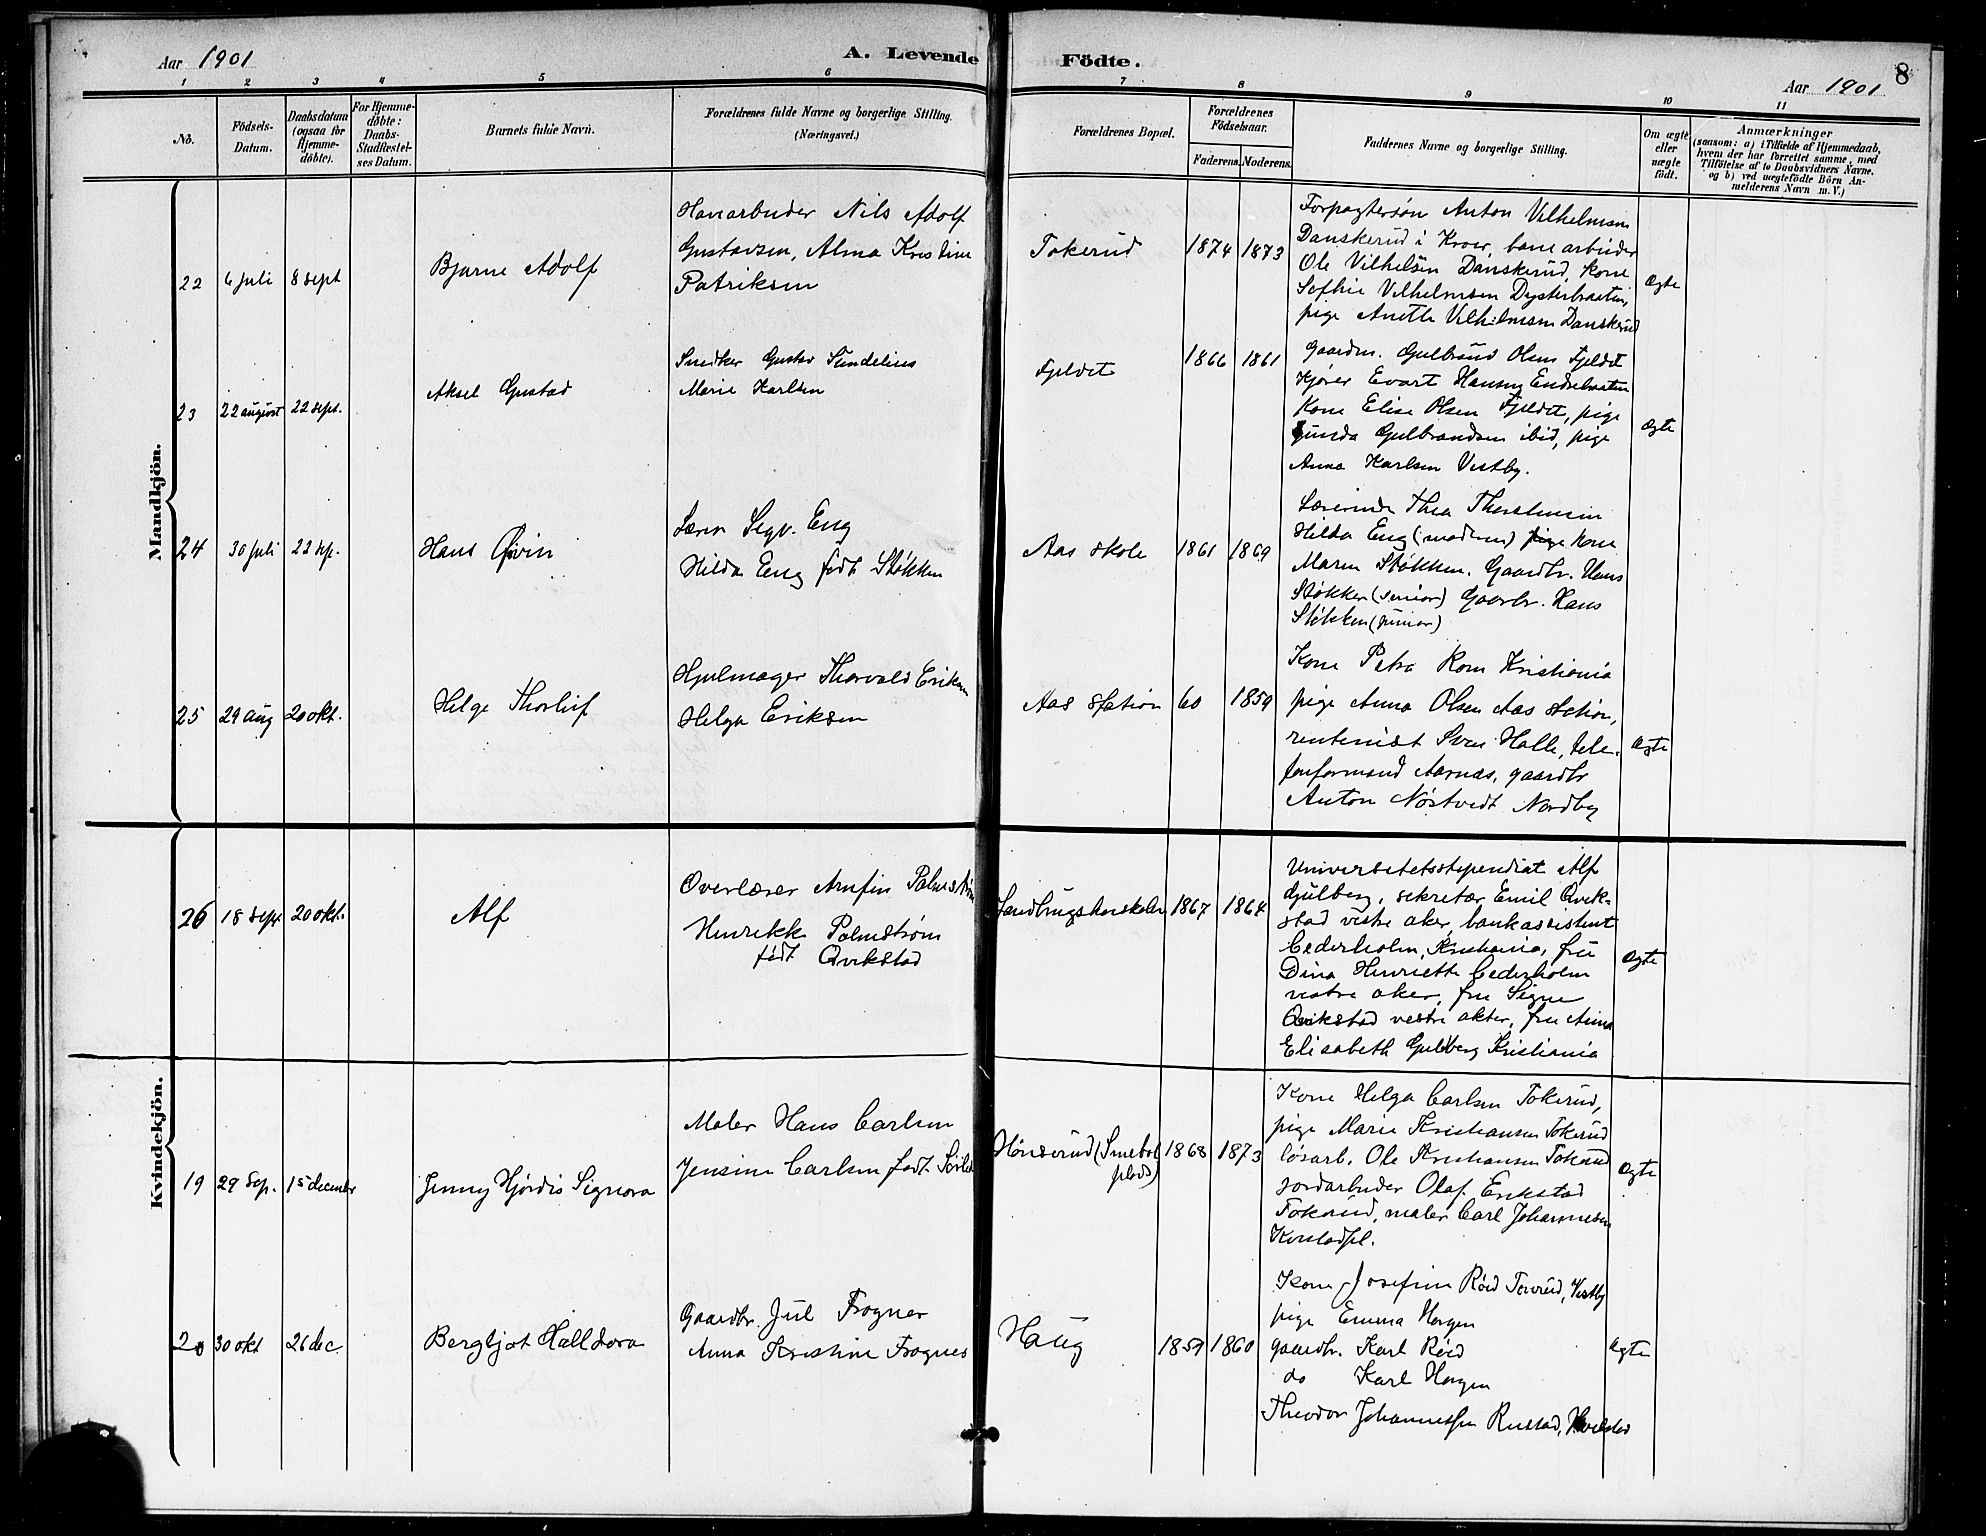 Aar 1901
A. Levende Födte.
8
Aar 1901
1 2 3 4 5 6 7 8 9 10 11
No.
Födsels-Datum.
Daabsdatum (ogsaa for Hjemme-döbte).
For Hjemme-döbte: Daabs-Stadfæstel-ses Datum.
Barnets fulde Navn.
Forældrenes fulde Navne og borgerlige Stilling. (Næringsvei.)
Forældrenes Bopæl.
Forældrenes Födselsaar.
Faderens. Moderens.
Faddernes Navne og borgerlige Stilling.
Om ægte eller uægte födt.
Anmærkninger
(saasom: a) i Tilfælde af Hjemmedaab, hvem der har forrettet samme, med Tilföielse af to Daabsvidners Navne, og b) ved uægtefödte Börn An-melderens Navn m. V.)
Mandkjön.
22 6 juli 8 sept
Bjarne Adolf
Nils Adolf
Gustavsen, Alma Kristine
Patriksen
Tokerud
1874 1873
Forpagtersøn Anton Vilhelmsen
Danskerud i Kroer, banearbeider
Ole Vilhelmsen Danskerud, kone
Sofhie Vilhelmsen Dysterbraaten,
pige Anette Vilhelmsen Danskerud
ægte
23 22 august 22 sept.
Aksel Gustad
Snedker Gustav Sundelius
Marie Karlsen
Fjeldet
1866 1861
Gaardm. Gulbrand Olsen Fjeldet
Kjører Evart Hansen
Kone Elise Olsen Fjeldet, pige
Gunda Gulbrandsen ibid, pige
Anna Karlsen Vestby.
ægte
24 30 juli 22 sep.
Hans Øivin
Lærer Sigv. Eng
Hilda Eng født Støkken
Aas skole
1861 1869
Lærerinde Thea
Hilda Eng (moderen) kone
Maren Støkken. Gaardbr. Hans
Støkken (senior) Gaarbr. Hans
Støkken (junior)
25 29 aug 20 okt.
Helge Thorleif
Hjulmager Thorvald Eriksen
Helga Eriksen
Aas station
60 1859
Kone Petra Kristiania
pige Anna Olsen Aas station,
rentenist Sven Holle, tele-
fonformand Aarnæs, gaardbr
Anton Nøstvedt Nordby
ægte
26 18 sept 20 okt.
Alf
Overlærer Arnfin Palmstrøm
Henrikke Palmstrøm
født Qvikstad
Landbrugshøiskolen
1867 1864
Universitetsstipendiat Alf
Gulberg, sekretær Emil Qvik-
stad vestre aker, bankassistent
Cederholm, Kristiania, fru
Dina Henriette Cederholm
vestre aker, fru Signe
Qvikstad vestre akter, fru Anna
Elisabeth Guldberg Kristiania
ægte
Kvindekjön.
19 29 Sep. 15 december
Jenny Hjørdis Signora
Maler Hans Carlsen
Jensine Carlsen født
Hønserud
1868 1873
Kone Helga Carlsen Tokerud,
pige Marie Kristiansen Tokerud
løsarb. Ole Kristiansen Tokerud
jordarbeider Olaf Erikstad
Tokerud, maler Carl Johannesen
ægte
20 30 okt 26 dec.
Bergljot Halldora
Gaardbr. Jul Frogner
Anna Kristine Frogner
Haug
1859 1860
Kone Josefine Røed Vestby
pige Emma Horgen
gaardbr. Karl Røed
do Karl Horgen
Theodor Johannessen Rustad,
ægte